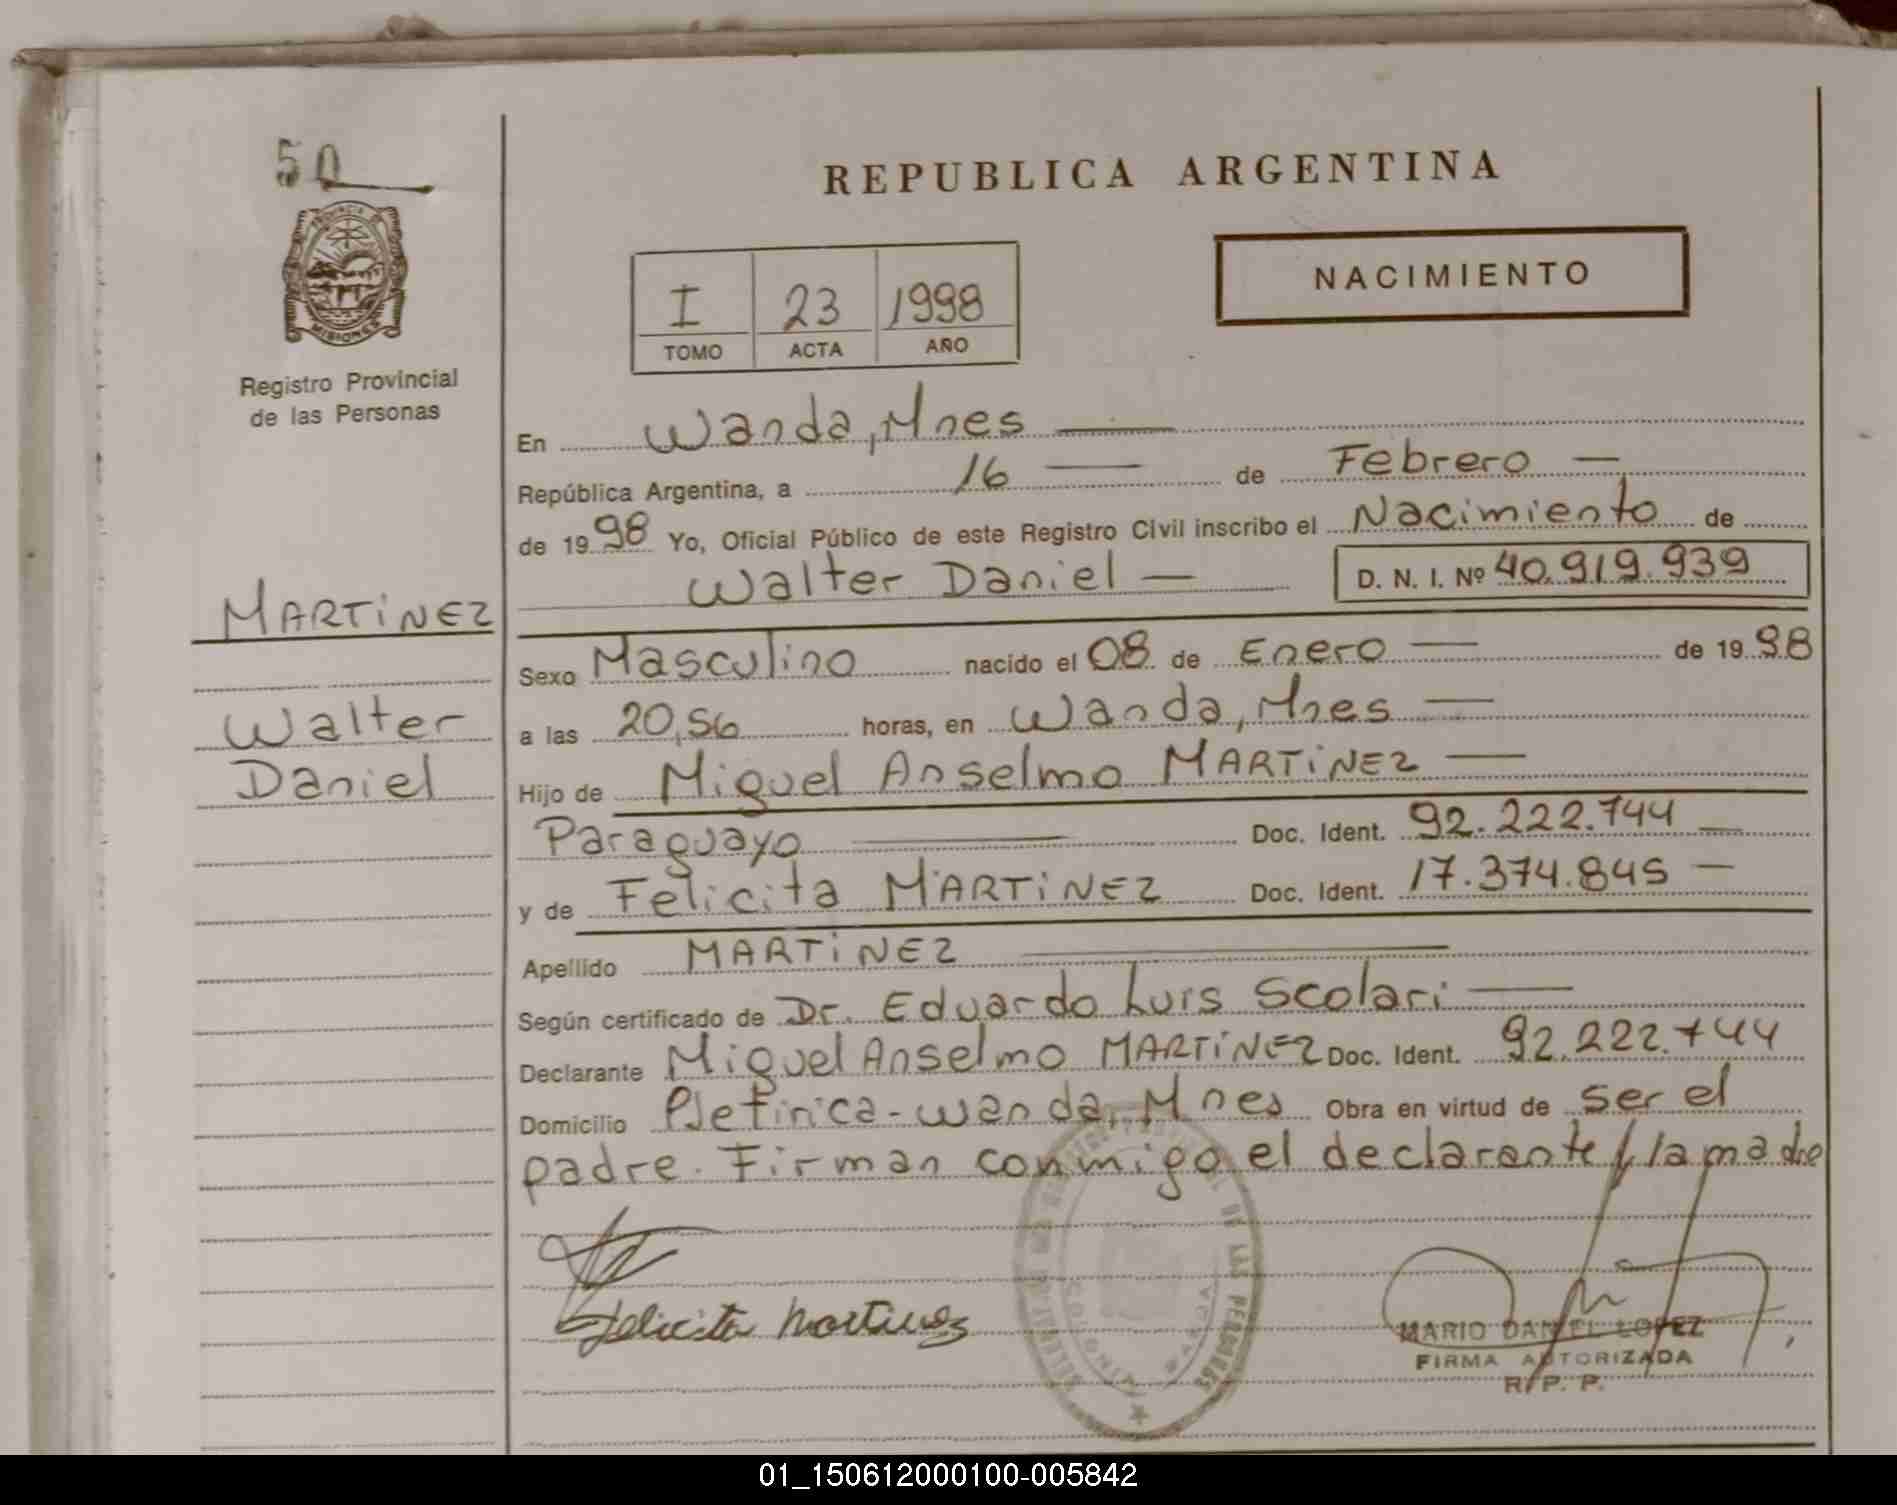 50
PROVINCIA DE
MISIONES
Registro Provincial
de las Personas
REPUBLICA ARGENTINA
NACIMIENTO
I 23 1998
TOMO ACTA AÑO
En Wanda, Mnes
República Argentina, a 16 de Febrero
de 1998 Yo, Oficial Público de este Registro Civil inscribo el Nacimiento de
Walter Daniel D. N. I. Nº 40.919.939
MARTiNEZ
Walter
Daniel
Sexo Masculino nacido el 08 de Enero de 1998
a las 20,56 horas, en Wanda, Mnes
Hijo de Miguel Anselmo MARTiNEZ
Paraguayo Doc. Ident. 92.222.744
y de Felicita MARTiNEZ Doc. Ident. 17.374.845
Apellido MARTiNEZ
Según certificado de Dr. Eduardo Luis Scolari
Declarante Miguel Anselmo MARTiNEZ Doc. Ident. 92.222.744
Domicilio Wanda, Mnes Obra en virtud de ser el
padre. Firman conmigo el declarante y la madre
Felicita Martinez
MARIO DANIEL LOPEZ
FIRMA AUTORIZADA
R. P. P.
01_150612000100-005842